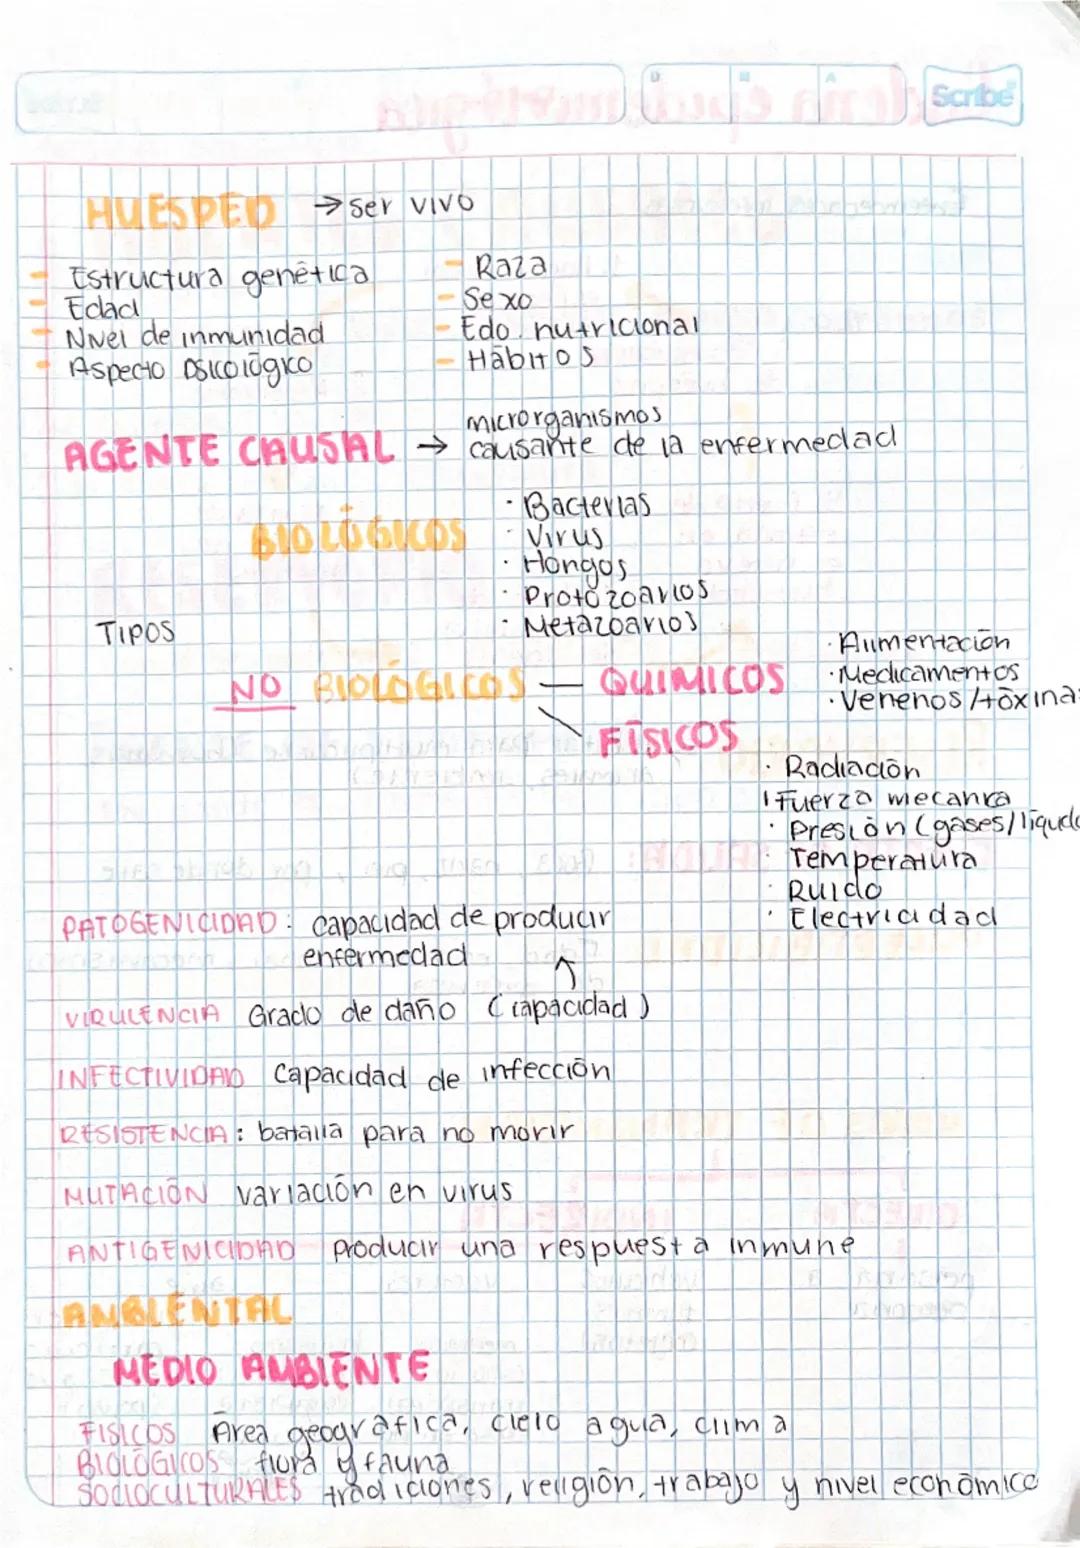 D
M
A
Scribe
HUESPED → ser vivo
- Estructura genética
- Edad
- Nivel de inmunidad
- Aspecto psicológico
- Raza
- Sexo
- Edo. nutricional
- Hábitos
AGENTE CAUSAL → microrganismos
causante de la enfermedad
TIPOS
BIOLÓGICOS
· Bacterias
· Virus
· Hongos
· Protozoarios
· Metazoarios
NO BIOLÓGICOS — QUIMICOS
· Alimentación
· Medicamentos
· Venenos/tóxinas
FÍSICOS
· Radiación
Fuerza mecanica
· Presión (gases/líquido
· Temperatura
· Ruido
· Electricidad
PATOGENICIDAD: capacidad de producir
enfermedad ↑
VIRULENCIA Grado de daño (capacidad)
INFECTIVIDAD Capacidad de infección
RESISTENCIA: batalla para no morir
MUTACIÓN variación en virus
ANTIGENICIDAD producir una respuesta inmune
AMBIENTAL
MEDIO AMBIENTE
FISICOS Área geográfica, cielo agua, clima
BIOLÓGICOS flora y fauna
SOCIOCULTURALES tradiciones, religión, trabajo y nivel económico